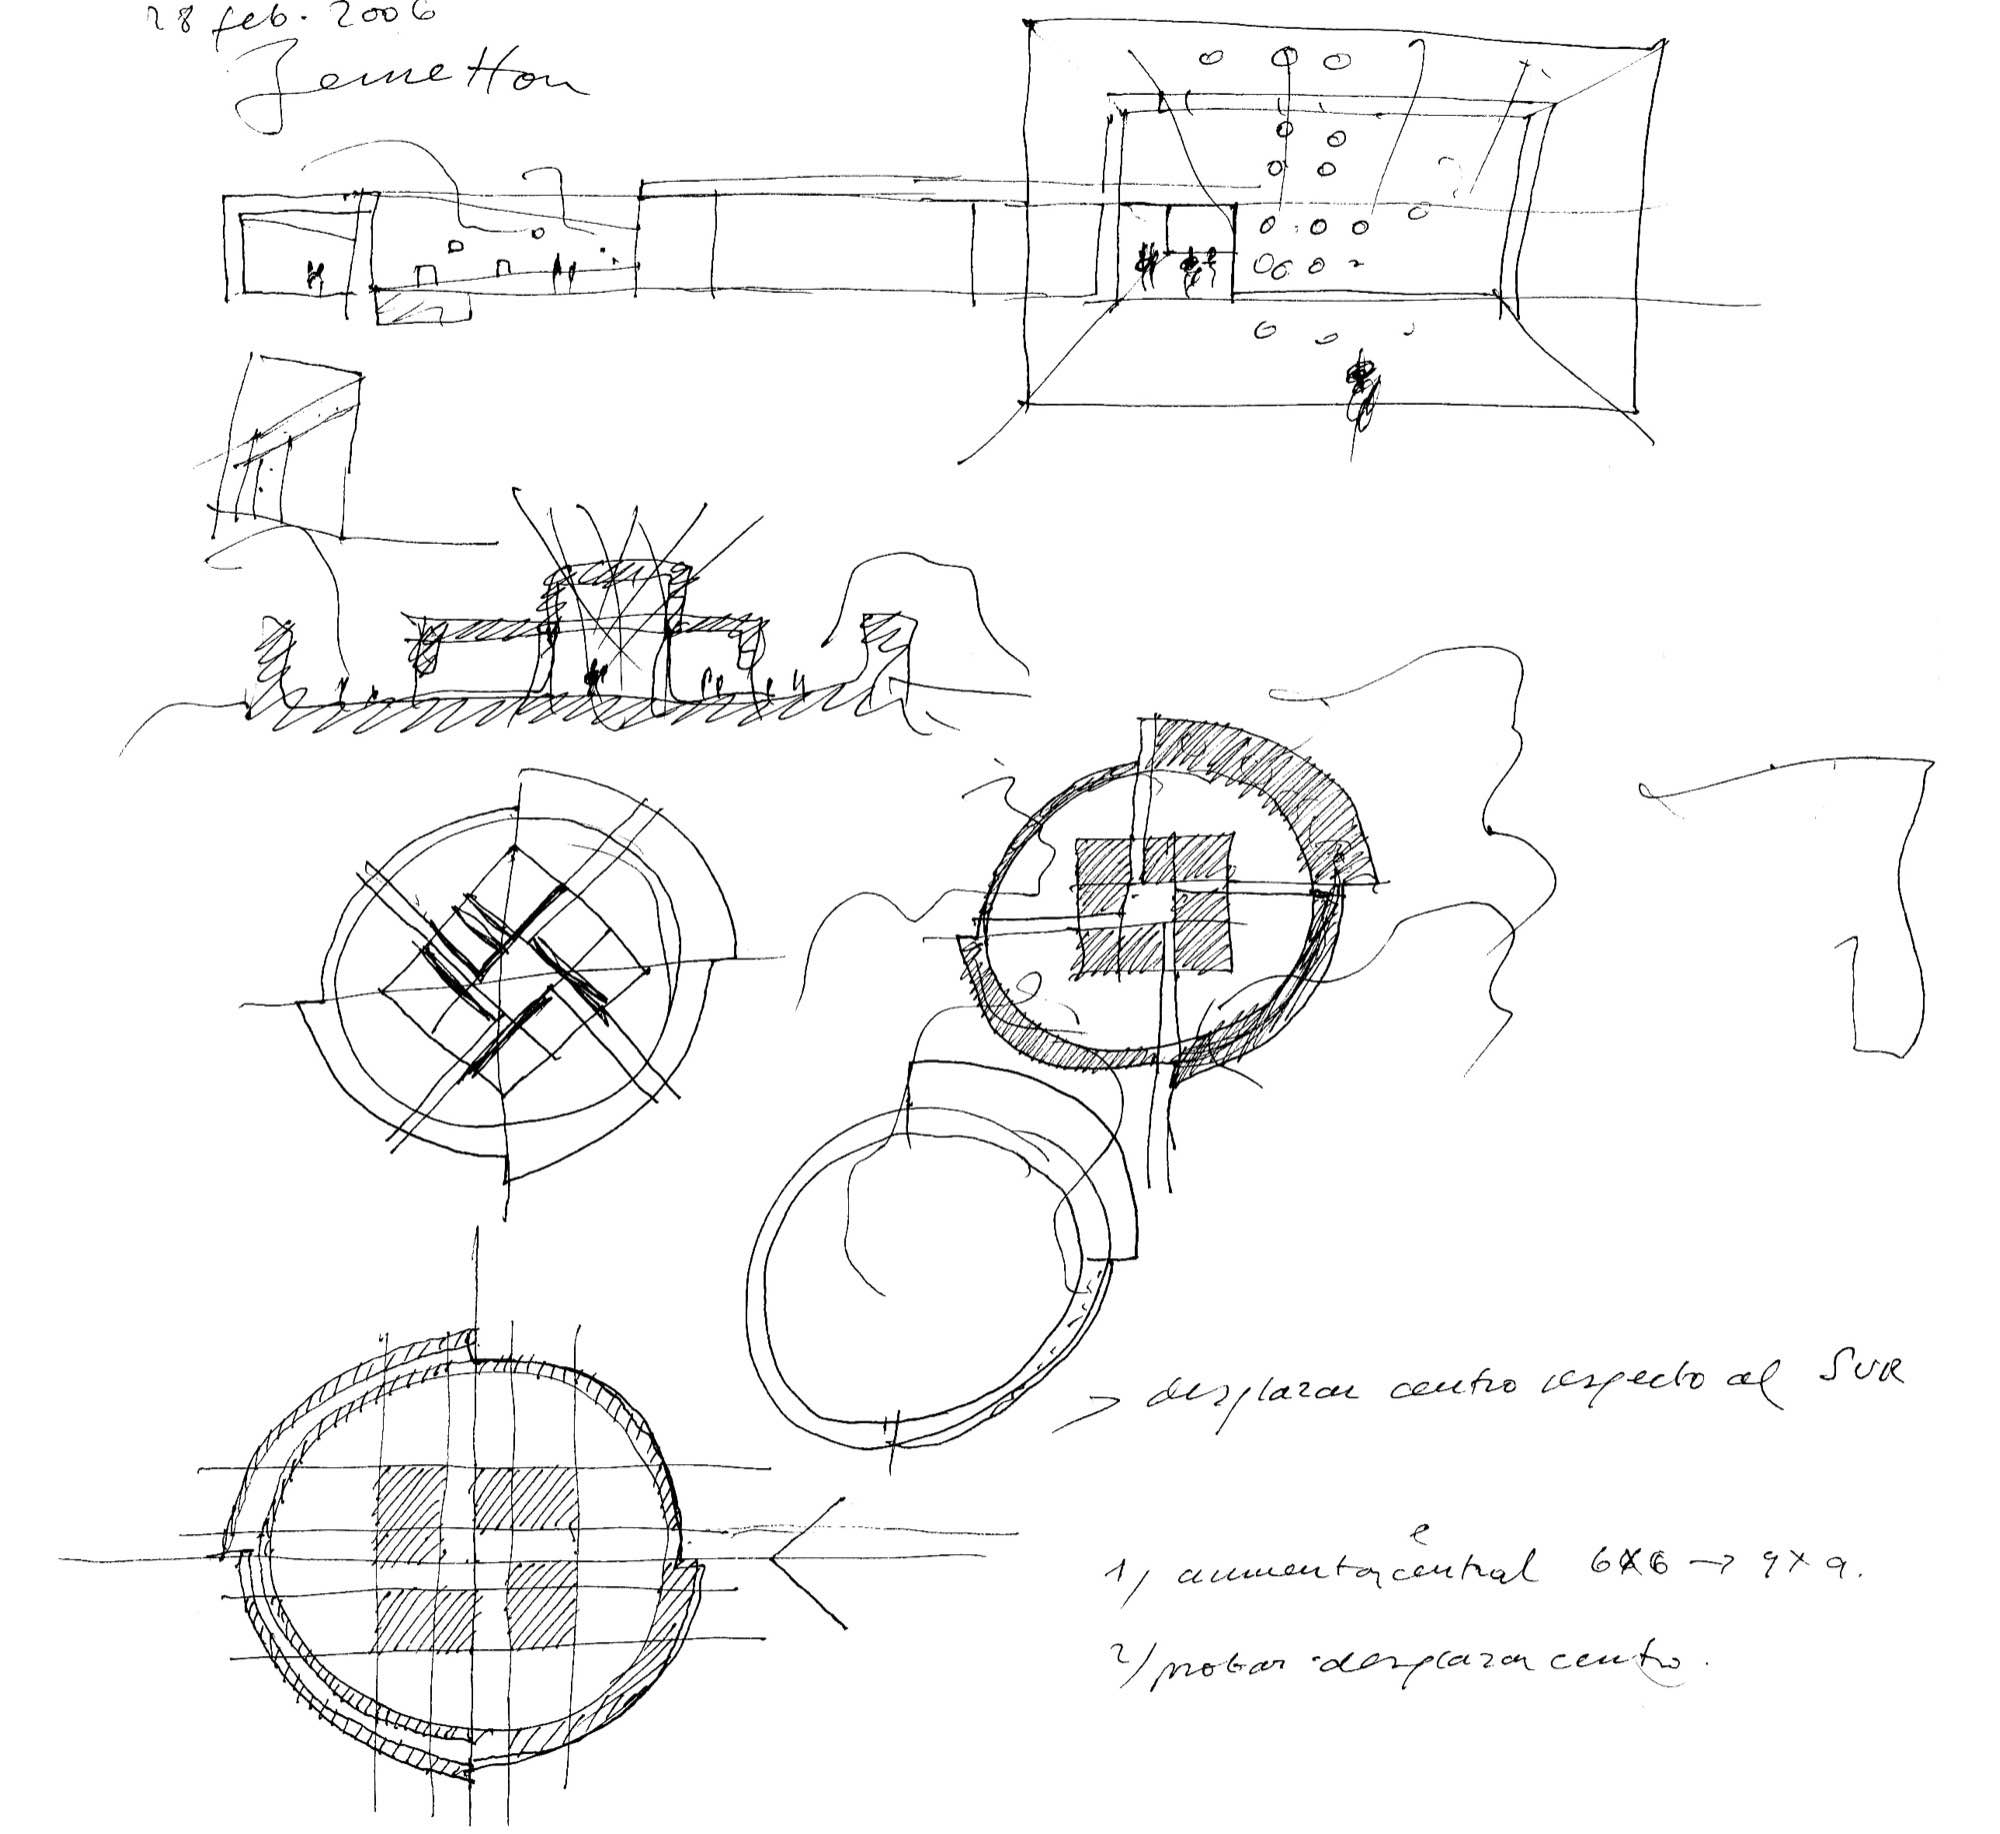 28 feb. 2006
Benetton
→ desplazar centro respecto al SUR
1) aumentar central 6x6 → 9x9.
2) probar desplazar centro.